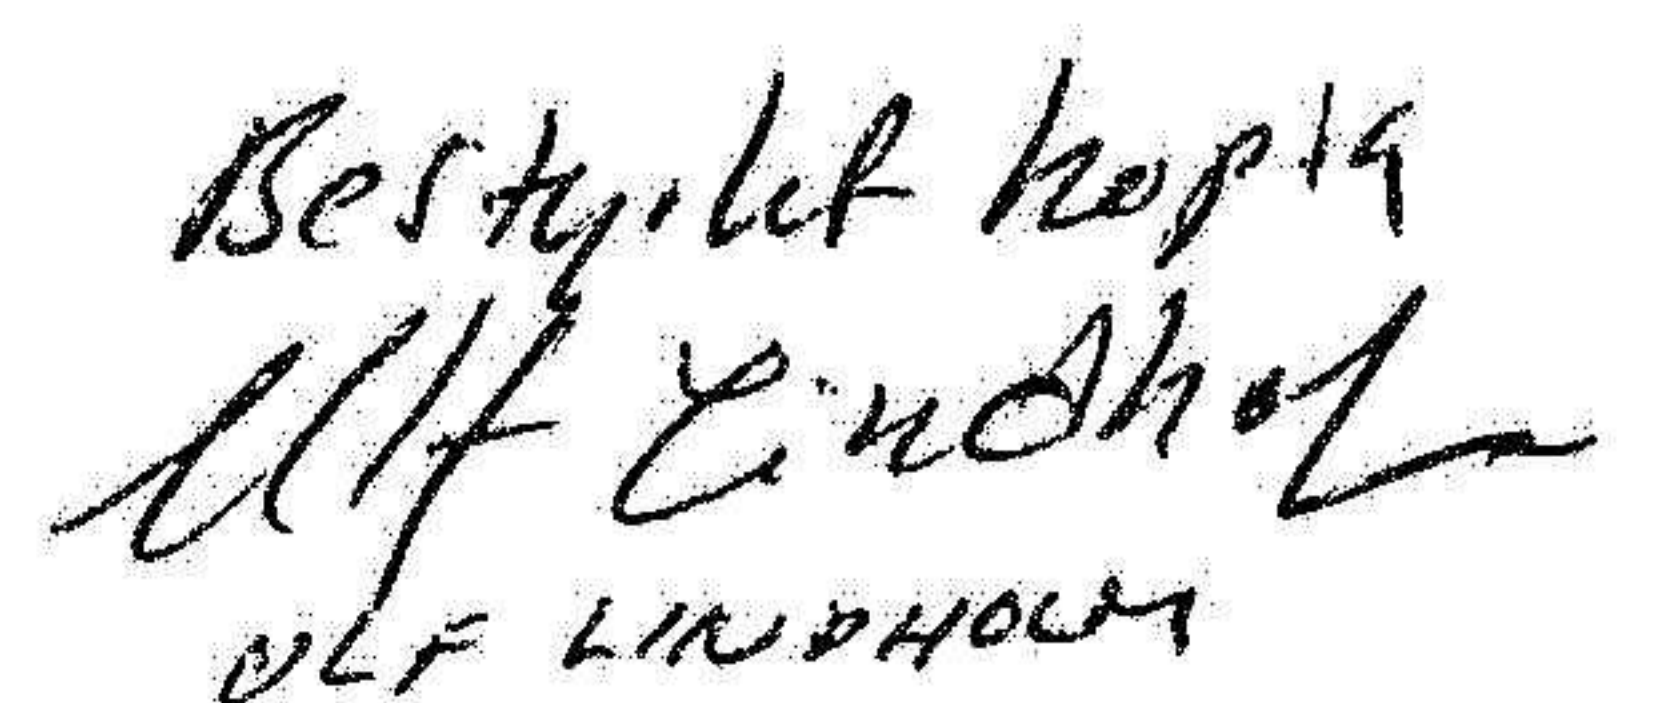 Bestyrkt kopia
Ulf Lindholm
ULF LINDHOLM